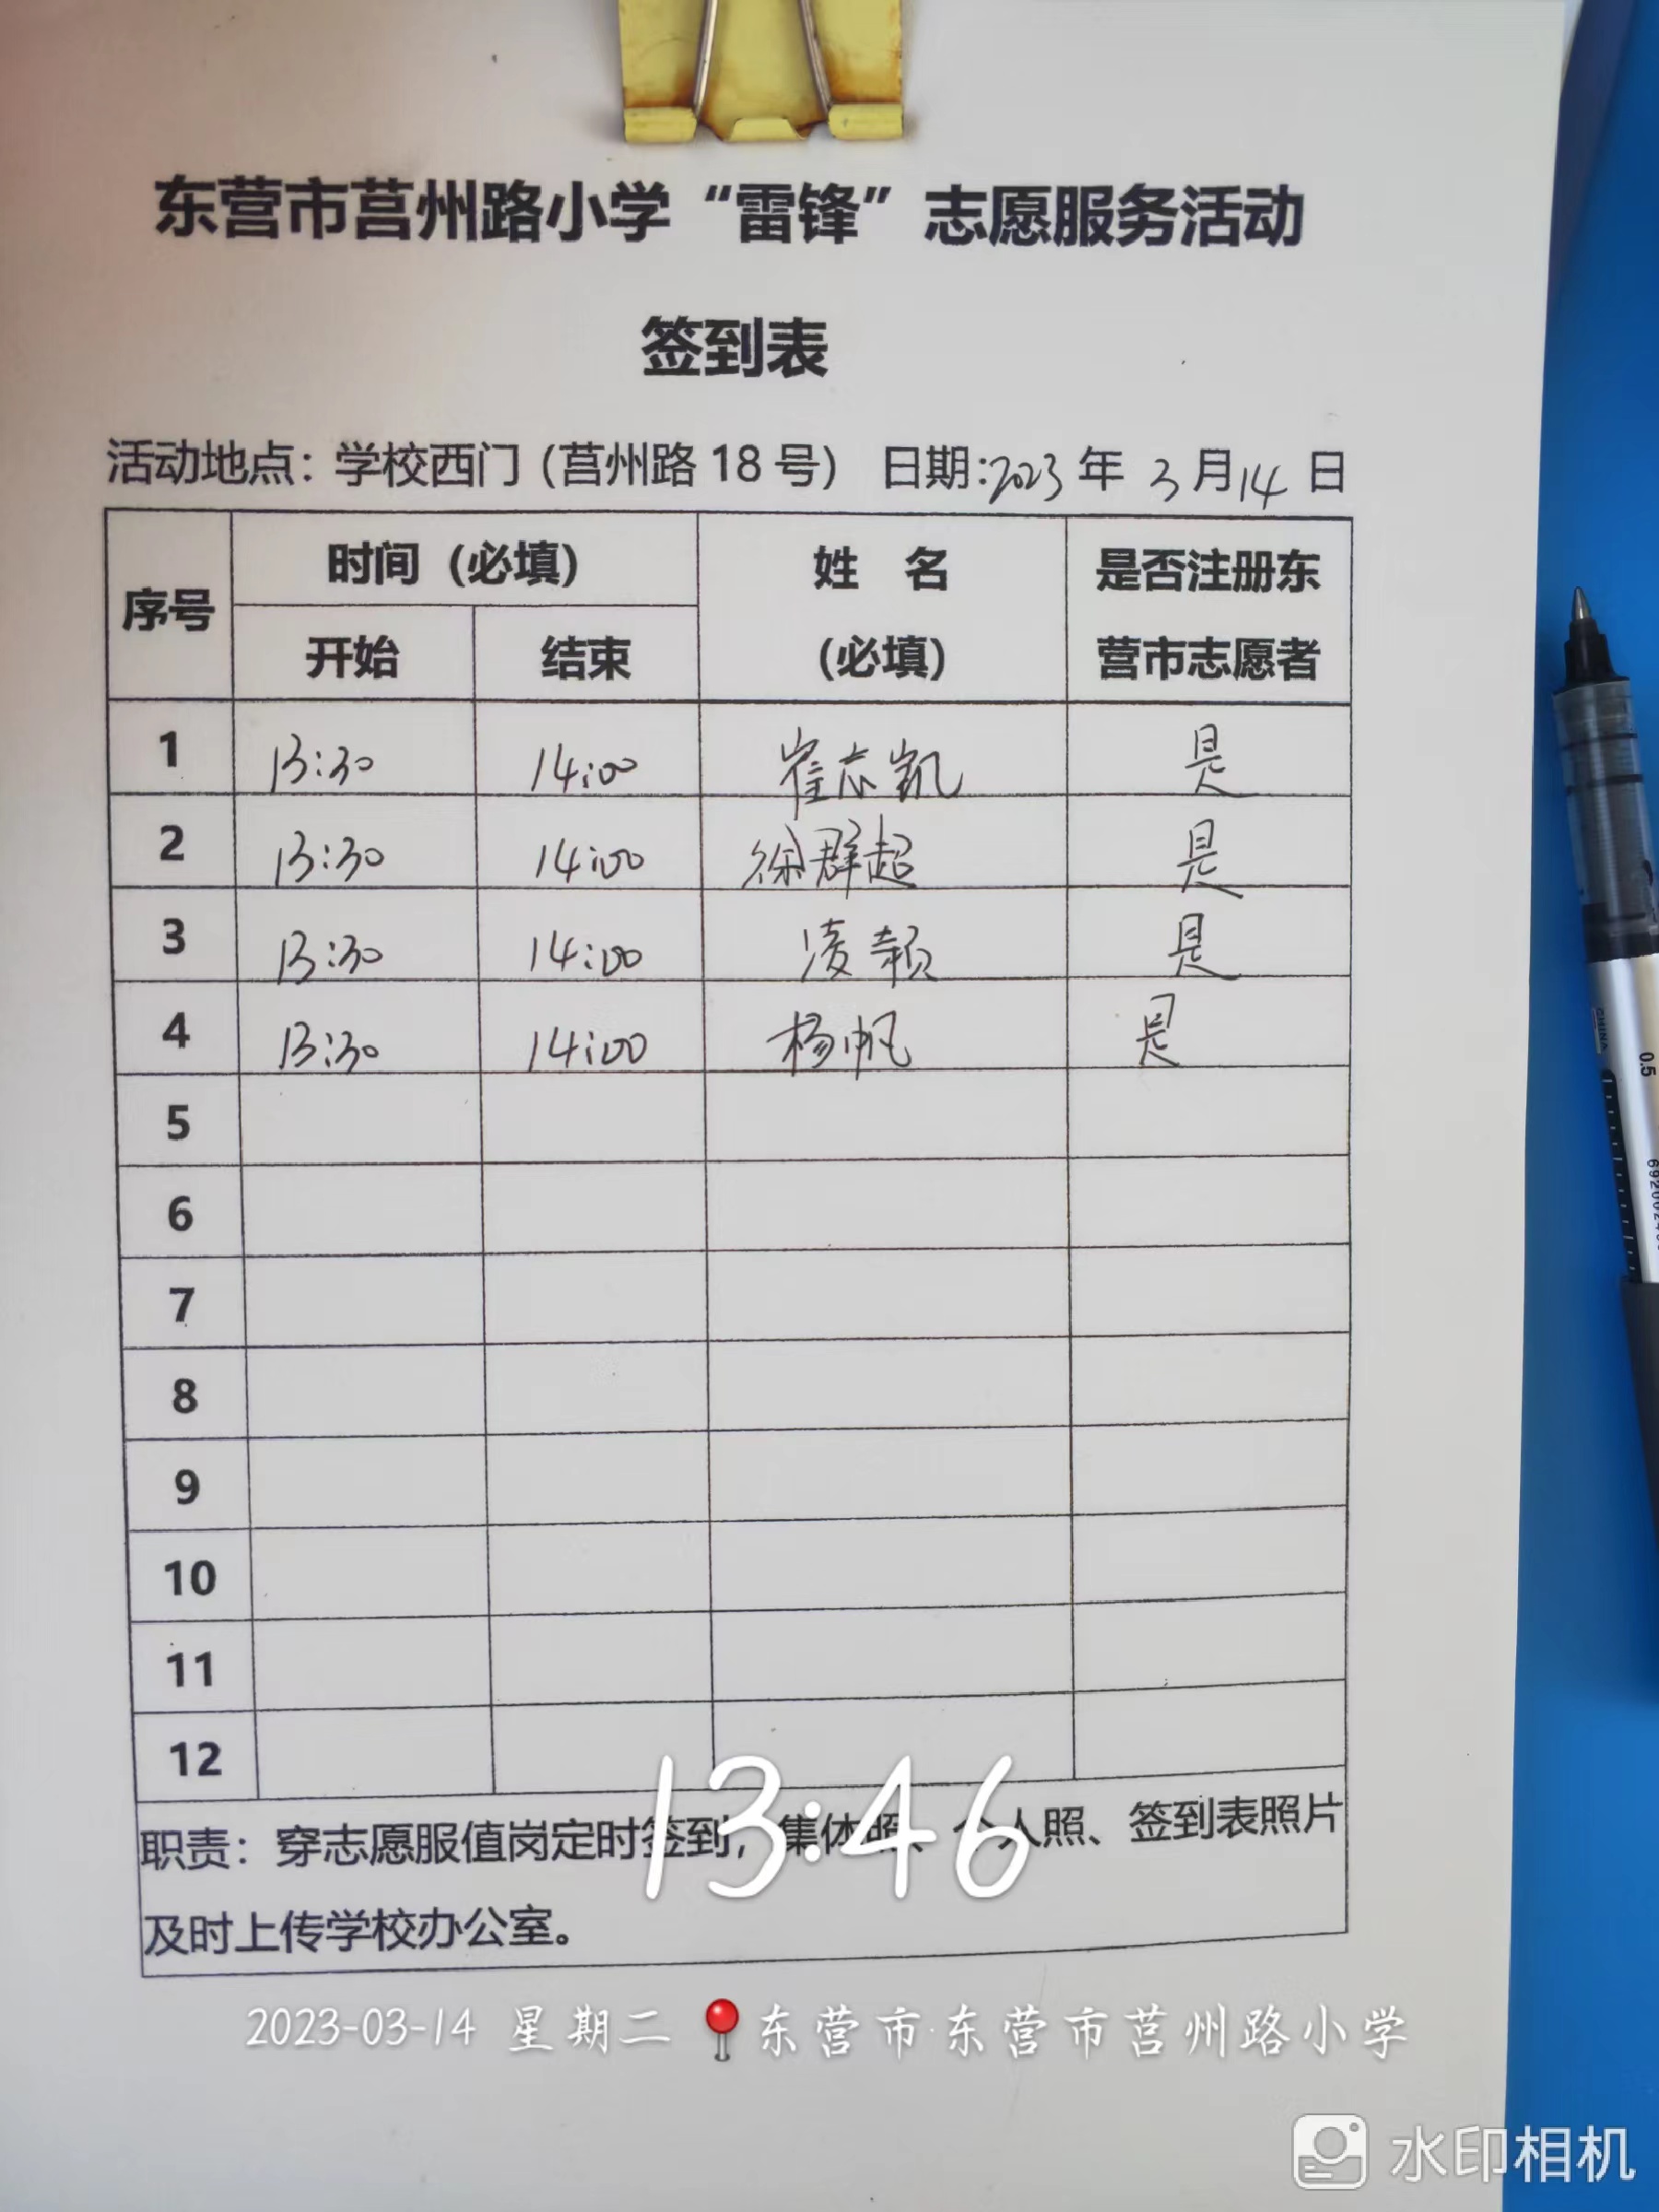 东营市莒州路小学“雷锋”志愿服务活动
签到表
活动地点：学校西门（莒州路18号） 日期:2023年 3月14日
序号 时间（必填） 姓 名（必填） 是否注册东营市志愿者
开始 结束
1 13:30 14:00 崔志凯 是
2 13:30 14:00 徐群超 是
3 13:30 14:00 凌颖 是
4 13:30 14:00 杨帆 是
5
6
7
8
9
10
11
12
职责：穿志愿服值岗定时签到，集体照、个人照、签到表照片
及时上传学校办公室。
13:46
2023-03-14 星期二 东营市·东营市莒州路小学
水印相机
CHINA
0.5